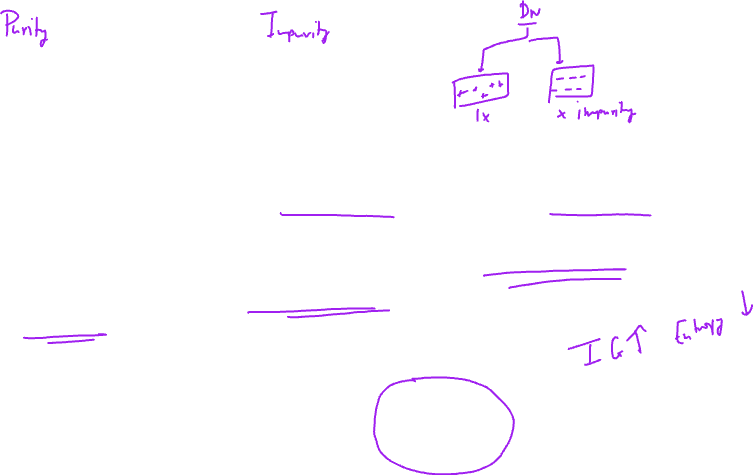 Purity
Impurity
DN
+ + + +
- - -
- - -
1x
x impurity
IG↑
Entropy ↓